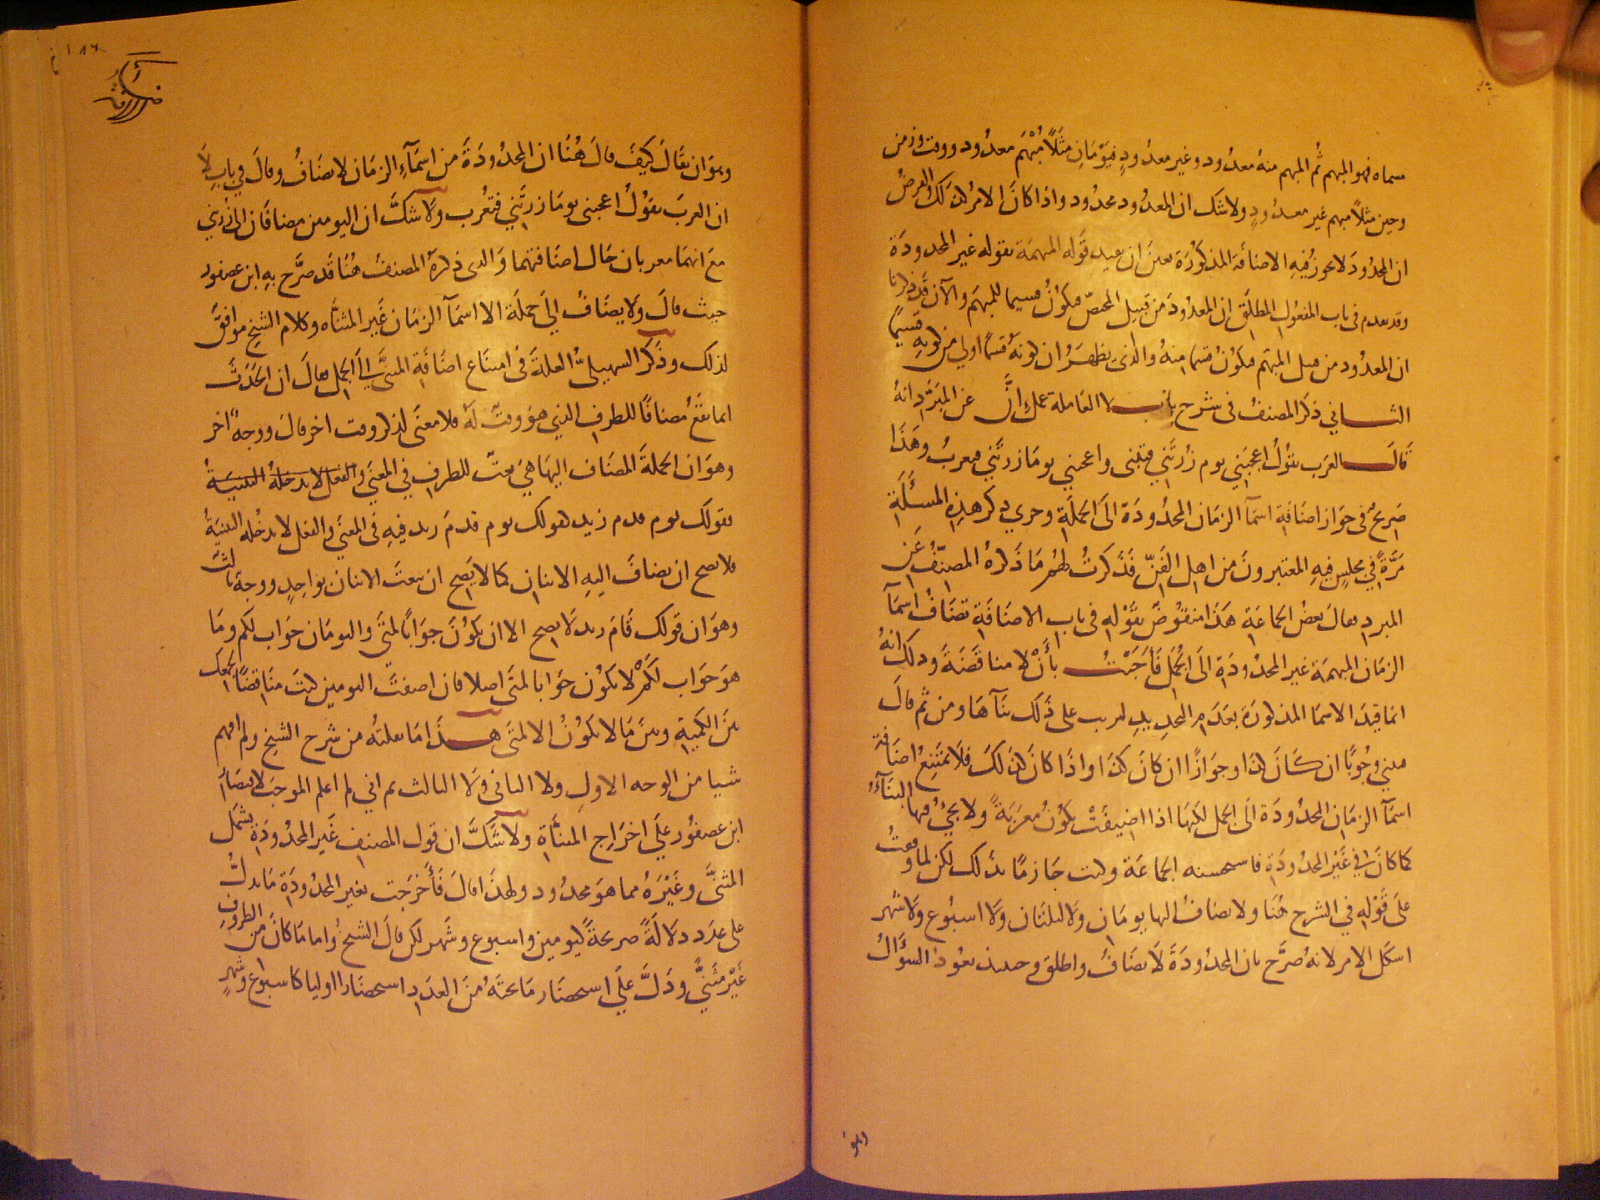 مسماه فهو المبهم ثم المبهم منه معدود وغير معدود فيومان مثلا مبهم معدود ووقت وزمن
وحين مثلا مبهم غير معدود ولا شك ان المعدود محدود واذا كان الامر كذلك والغرض
ان المحدود لا يجوز فيه الاضافة المذكورة تعين ان يقيد قوله المبهمة بقوله غير المحدودة
وقد تقدم في باب المفعول المطلق ان المعدود من قبيل المختص فيكون قسيما للمبهم والآن قد ذكرنا
ان المعدود من قبيل المبهم فيكون قسما منه والذي يظهر ان كونه قسما اولى من كونه قسيما
الثاني ذكر المصنف في شرح باب لا العاملة عمل انّ عن المبرد انه
قال العرب تقول اعجبني يوم زرتني فيه واعجبني يوما زرتني معرب وهذا
صريح في جواز اضافة اسماء الزمان المحدودة الى الجملة وجرى ذكر هذه المسئلة
مرة في مجلس فيه المعتبرون من اهل الفن فذكرت لهم ما ذكره المصنف عن
المبرد فقال بعض الجماعة هذا منقوض بقوله في باب الاضافة تضاف اسماء
الزمان المبهمة غير المحدودة الى الجمل فاجبت بأن لا مناقضة وذلك انه
انما قيد الاسماء المذكورة بعدم التحديد ليرتب على ذلك بناءها ومن ثم قال
فتبنى وجوبا ان كان كذا وجوازا ان كان كذا واذا كان كذلك فلا تمتنع اضافة
اسماء الزمان المحدودة الى الجمل لكنها اذا اضيفت تكون معربة ولا يجيء فيها البناء
كما كان في غير المحدودة فاستحسنه الجماعة وكنت جازما بذلك لكن لما وقفت
على قوله في الشرح هنا ولا يضاف اليها يومان ولا ليلتان ولا اسبوع ولا شهر
اشكل الامر لانه صرح بان المحدودة لا تضاف واطلق وحينئذ يعود السؤال
وهو
وهو ان يقال كيف قال هنا ان المحدودة من اسماء الزمان لا تضاف وقال في باب لا
ان العرب تقول اعجبني يوما زرتني فتعرب ولا شك ان اليومين مضافان الى زرتني
مع انهما معربان حال اضافتهما والذي ذكره المصنف هنا قد صرح به ابن عصفور
حيث قال ولا يضاف الى الجملة الا اسماء الزمان غير المثناه وكلام الشيخ موافق
لذلك وذكر السهيلي العلة في امتناع اضافة المثنى الى الجمل فقال ان الحدث
انما يقع مضافا للظرف الذي هو وقت له فلا معنى لذكر وقت اخر قال ووجه اخر
وهو ان الجملة المضاف اليها هي نعت للظرف في المعنى والفعل لا تدخله التثنية
فقولك يوم قدم زيد كقولك يوم قدم زيد فيه في المعنى والفعل لا تدخله التثنية
فلا يصح ان يضاف اليه الاثنان كما لا يصح ان ينعت الاثنان بواحد ووجه ثالث
وهو ان قولك قام زيد لا يصح الا ان يكون جوابا لمتى واليومان جواب لكم وما
هو جواب لكم لا يكون جوابا لمتى اصلا فان اضفت اليومين كنت مناقضا لجمعك
بين الكمية وبين ما لا يكون الا لمتى هذا ما نقلته من شرح الشيخ ولم افهم
شيا من الوجه الاول ولا الثاني ولا الثالث ثم اني لم اعلم الموجب لاقتصار
ابن عصفور على اخراج المثناة ولا شك ان قول المصنف غير المحدودة يشمل
المثنى وغيره مما هو محدود ولهذا قال فأخرجت بغير المحدودة ما يدل
على عدد دلالة صريحة كيومين واسبوع وشهر لكن قال الشيخ واما ما كان من الظروف
غير مثنى ودل على استحضار ما تحته من العدد استحضارا اوليا كاسبوع وشهر